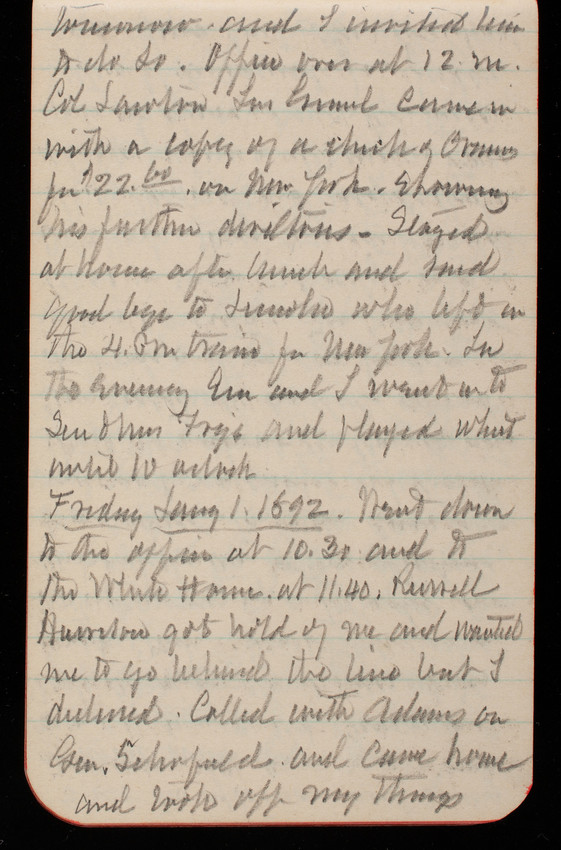 tomorrow and I invited him
to do so. Office over at 12 m.
Col Lawton Ins Genrl came in
with a copy of a check of
for $22.60 on New York. Showing
his further . Stayed
at home after lunch and said
good bye to who left in
the 4. Pm train for New York. In
the evening Em and I went in to
Gen & Mrs and played whist
until 10 oclock
Friday Jany 1. 1892. Went down
to the office at 10.30 and to
the White House at 11.40. Russell
Harrison got hold of me and wanted
me to go behind the line but I
declined. Called with Adams on
Gen. Schofield and came home
and took off my things